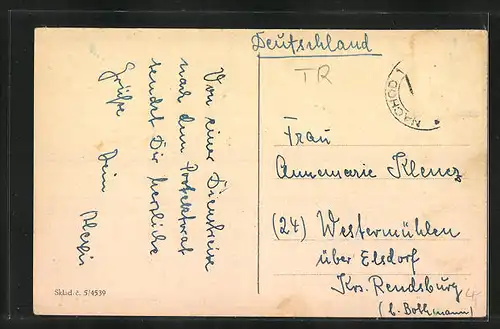 Deutschland
TR
NACHOD 1
Von einer Dienstreise
nach dem Protektorat
sendet Dir herzliche
Grüße Dein
Frau
Annemarie Klenez
(24) Westermühlen
über Elsdorf
Krs. Rendsburg
(b. Bothmann)
Sklad. č. 5/4539